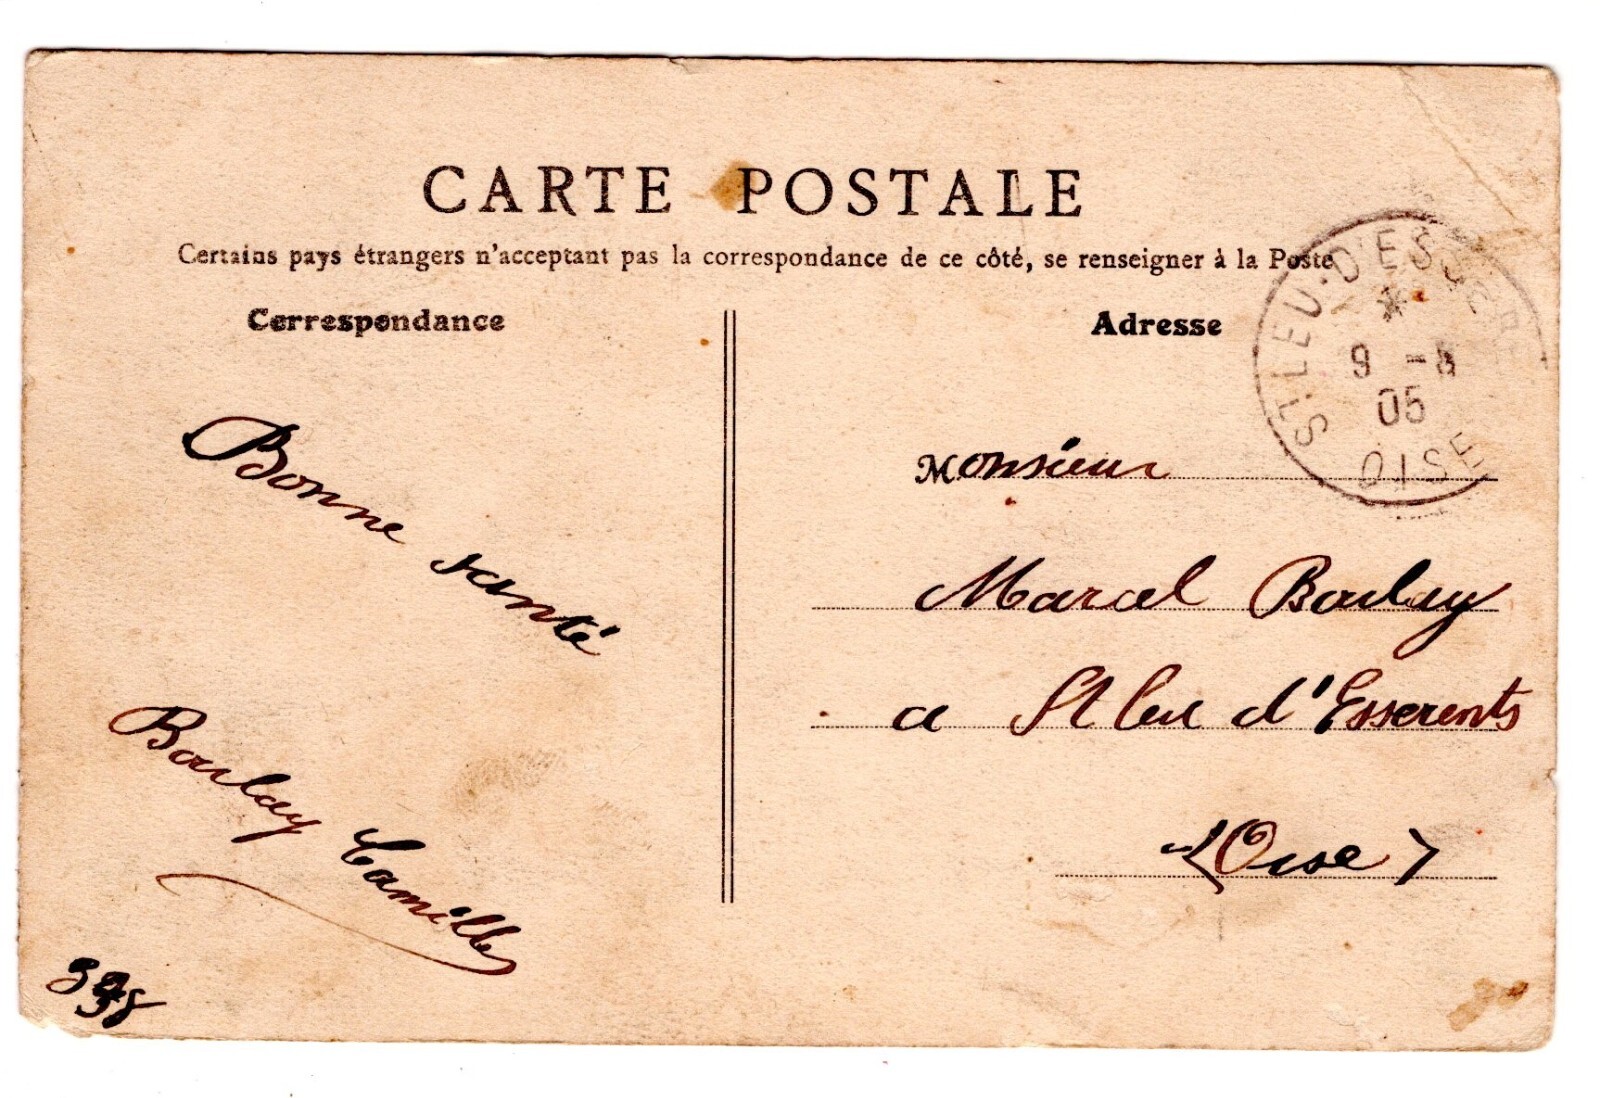 CARTE POSTALE
Certains pays étrangers n'acceptant pas la correspondance de ce côté, se renseigner à la Poste
Correspondance
Adresse
ST LEU-D'ESSERENT
*
9 -5
05
OISE
Bonne santé
Boulay Camille
Monsieur
Marcel Boulay
a St leu d'Esserents
(Oise)